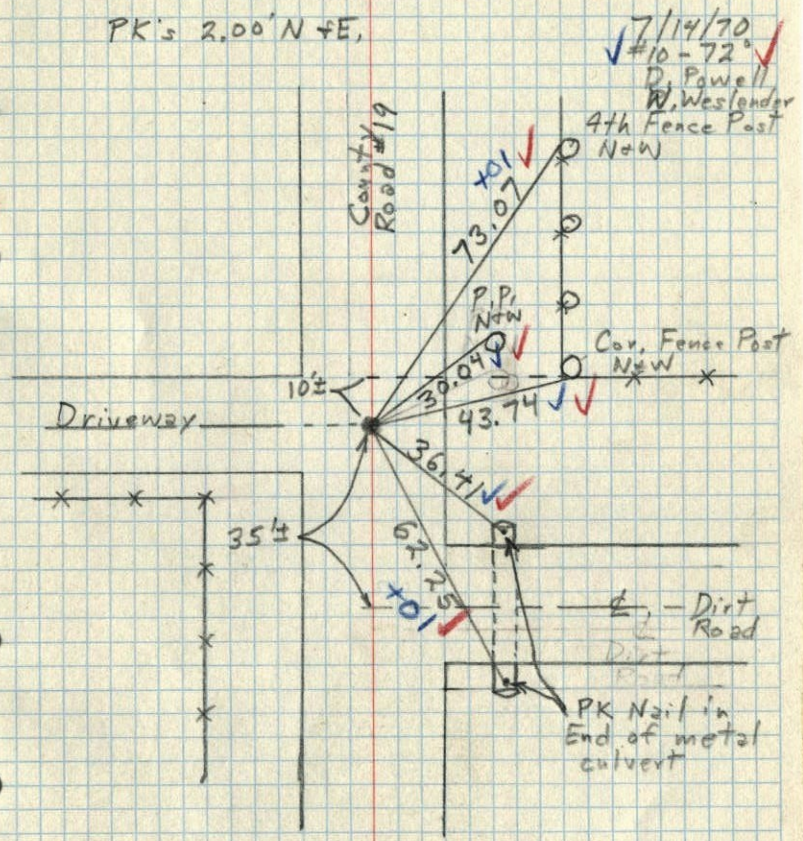 PK's 2.00' N &E,
7/14/70
#10 - 72°
D. Powell
W. Weslender
4th Fence Post
N&W
County
Road #19
+01
73.07
P.P.
N&W
Cor. Fence Post
N&W
10'±
30.04
43.74
Driveway
36.41
35'±
62.25
+01
℄ Dirt
Road
℄
Dirt
Road
PK Nail in
End of metal
culvert